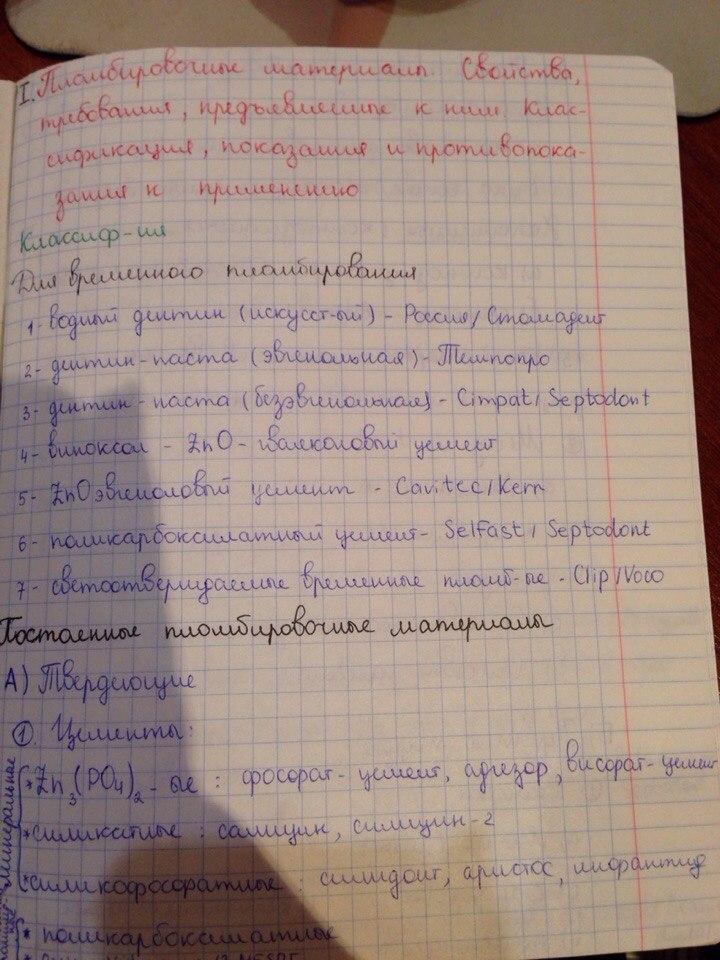 I. Пломбировочные материалы. Свойства,
требования, предъявленные к ним. Клас-
сификация, показания и противопока-
зания к применению
Классиф-ия
Для временного пломбирования
1- водный дентин (искусст-ый) - Россия/Стомадент
2- дентин-паста (эвгенольная) - Темпопро
3- дентин-паста (безэвгенольная) - Cimpat/Septodont
4- виноксол - ZnO - гваяколовый цемент
5- ZnO эвгеноловый цемент - Cavitec/Kerr
6- поликарбоксилатный цемент - Selfast/Septodont
7- светоотверждаемые временные пломб-ые - Clip/Voco
Постоянные пломбировочные материалы
А) Твердеющие
① Цементы:
Минеральные
* Zn3(PO4)2 - ые : фосфат-цемент, адгезор, висфат-цемент
* силикатные : силицин, силицин-2
* силикофосфатные : силидонт, аристос, инфантид
* поликарбоксилатные